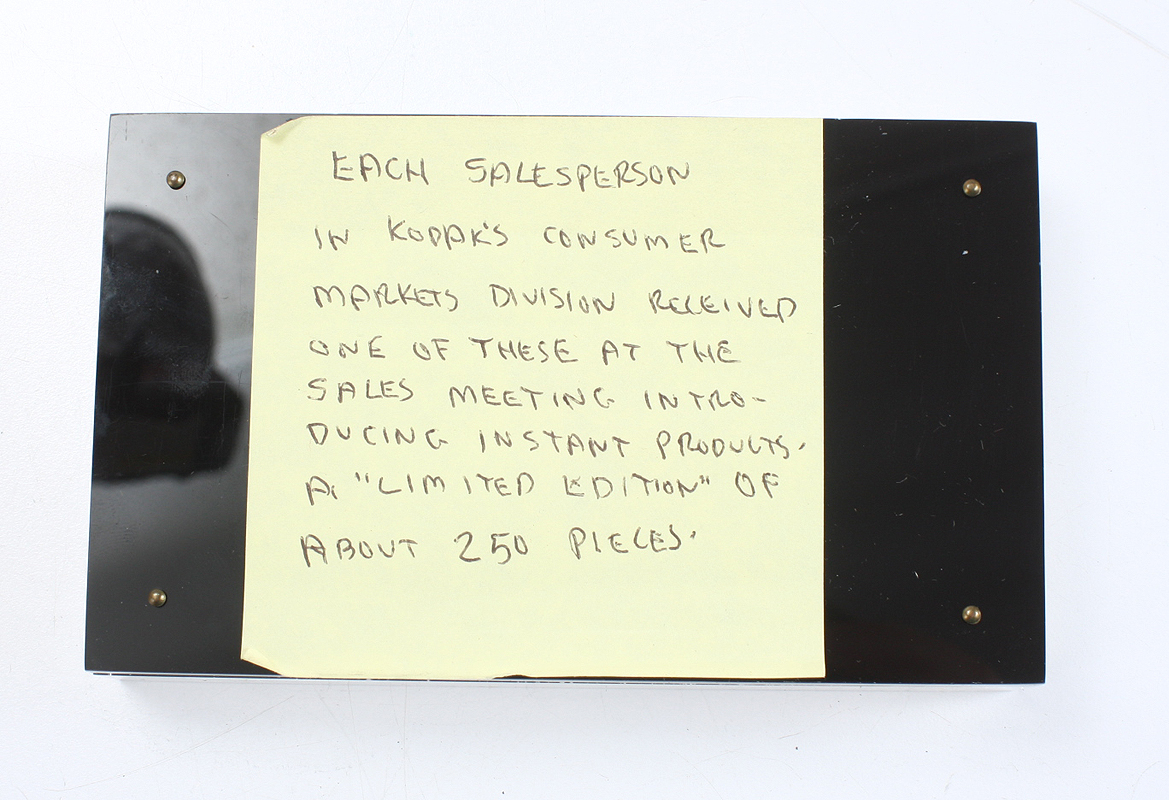 EACH SALESPERSON
IN KODAK'S CONSUMER
MARKETS DIVISION RECEIVED
ONE OF THESE AT THE
SALES MEETING INTRO-
DUCING INSTANT PRODUCTS.
A "LIMITED EDITION" OF
ABOUT 250 PIECES.